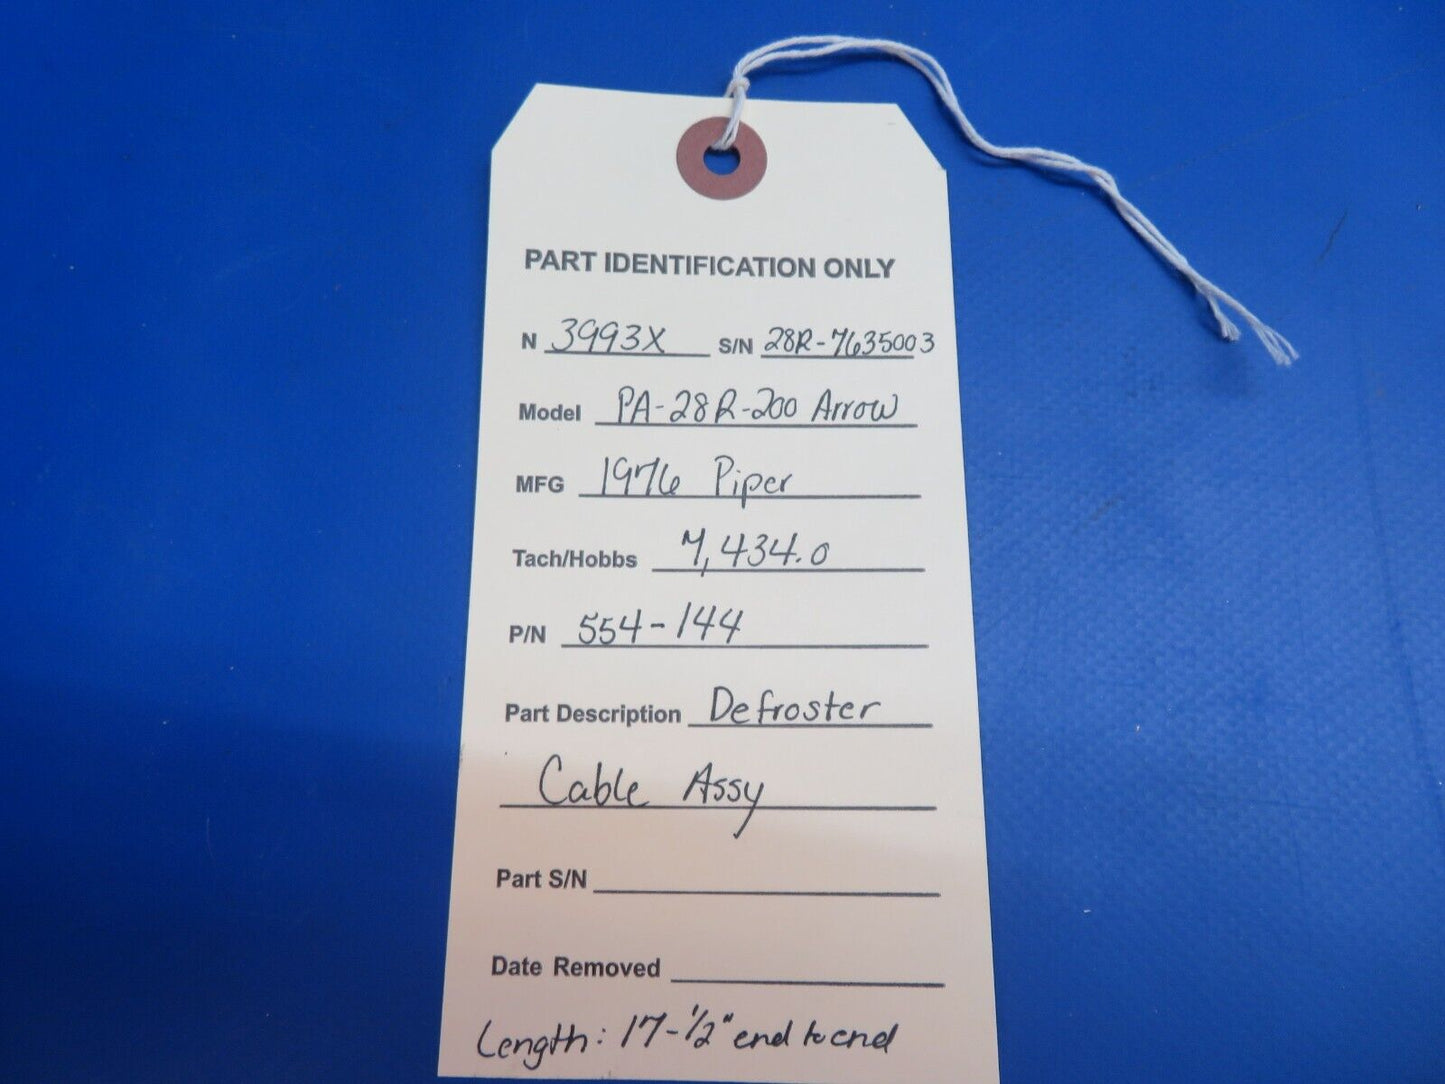 PART IDENTIFICATION ONLY
N 3993X S/N 28R-7635003
Model PA-28R-200 Arrow
MFG 1976 Piper
Tach/Hobbs 7,434.0
P/N 554-144
Part Description Defroster
Cable Assy
Part S/N
Date Removed
Length: 17-1/2" end to end